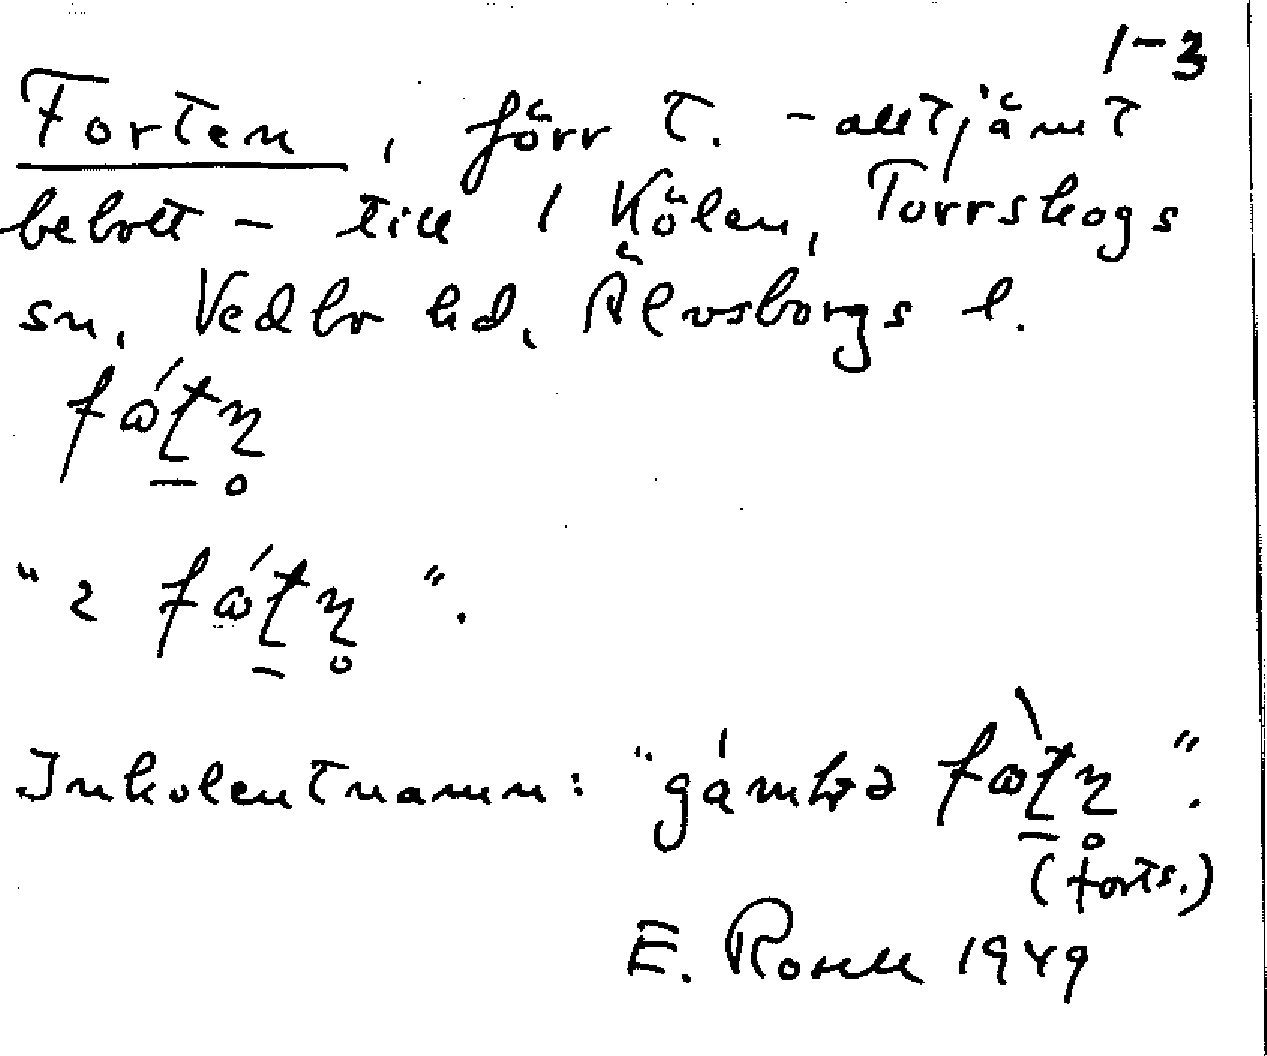 1-3
Forten, förr t. - alltjämt
bebott - till 1 Kölen, Torrskogs
sn, Vedbo hd, Älvsborgs l.
fátn̥
"2 fátn̥".
Inkolentnamn: "gámbɽə fàtn̥".
(forts.)
E. Rosell 1949